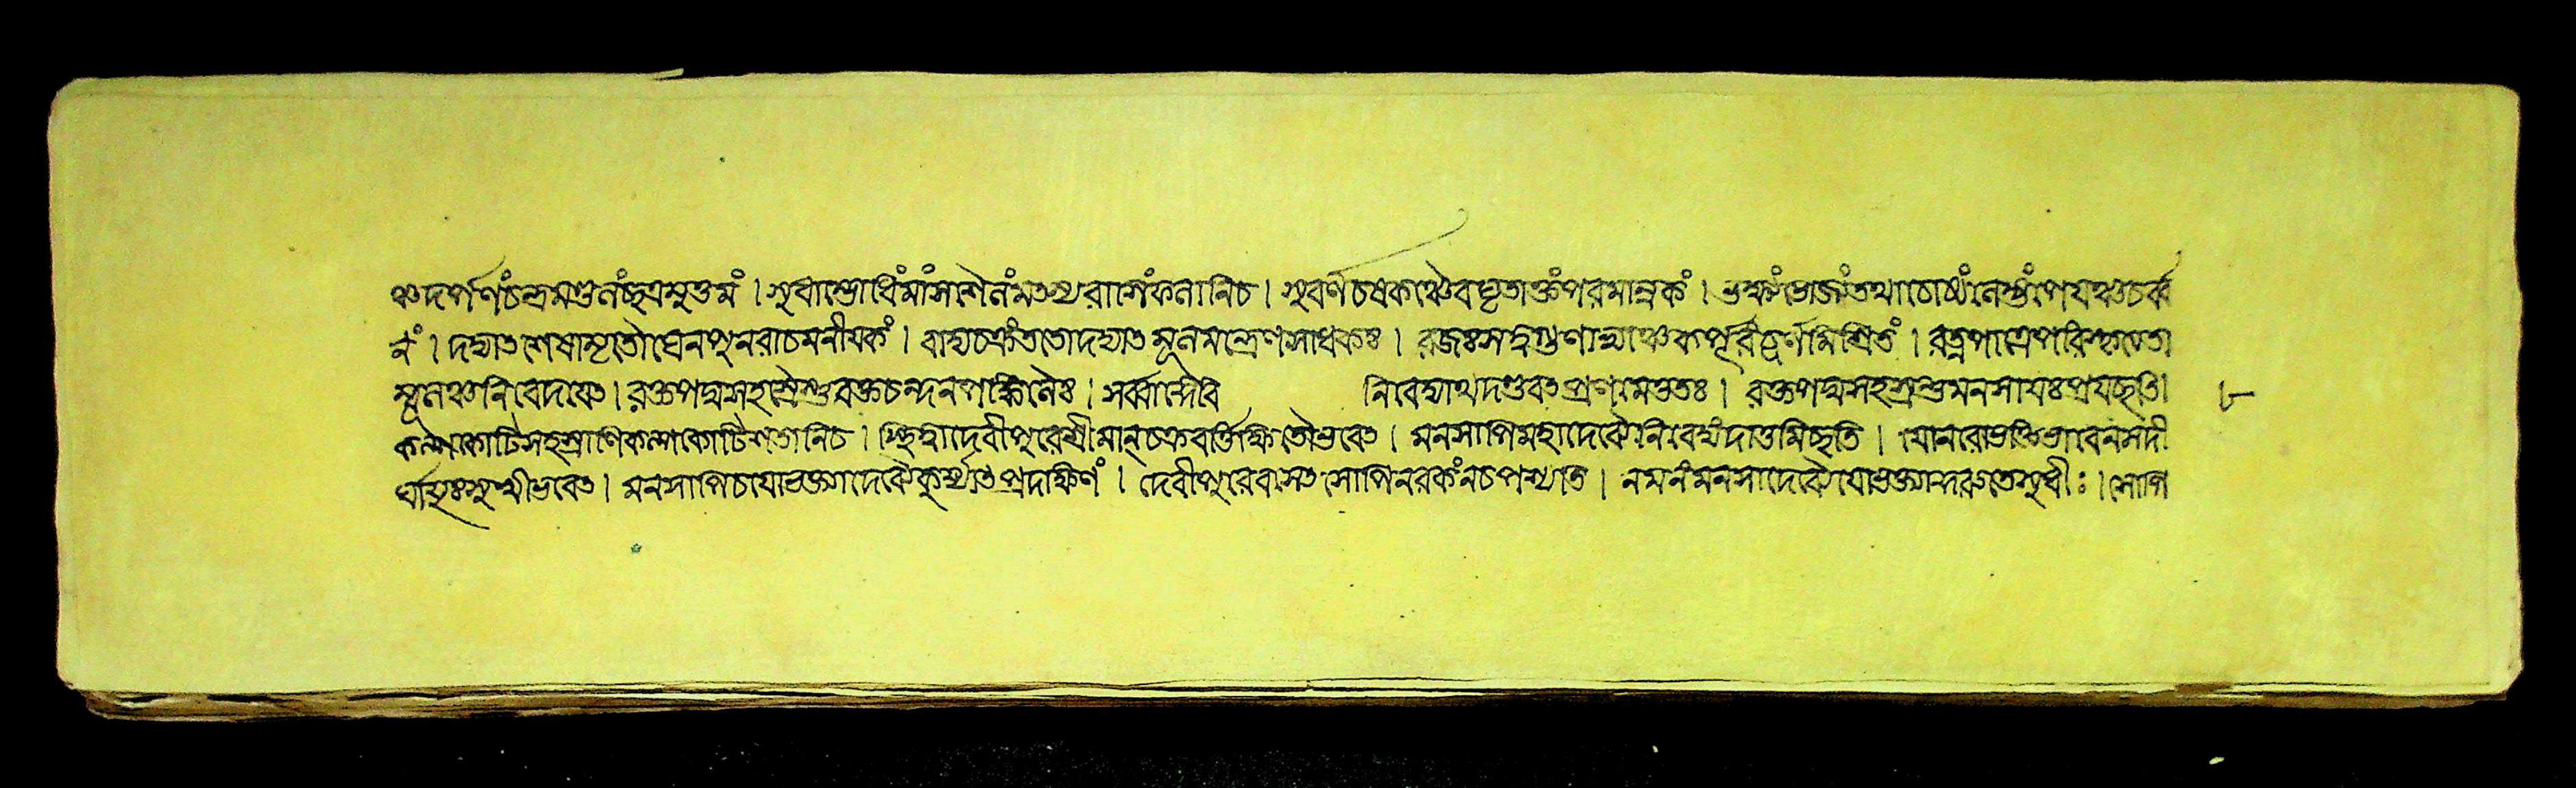 ঞ্চ দর্পণং চন্দ্রমণ্ডলং ছত্রমুত্তমং । সুধাম্ভোধিং মাংসশৈলং মৎস্যরাশিং ফলানি চ । সুবর্ণচষকঞ্চৈব ঘৃতাক্তং পরমান্নকং । ভক্ষ্যং ভোজ্যং তথা চোষ্যং লেহ্যং পেয়ঞ্চ চর্ব্ব
নং । দদ্যাৎ শেষামৃতৌঘেন পুনরাচমনীয়কং । বাদ্যচক্রং ততো দদ্যাৎ মূলমন্ত্রেণ সাধকঃ । রজঃসত্বগুণাভ্যাঞ্চ কর্পূরচূর্ণমিশ্রিতং । রত্নপাত্রে পরিস্থাপ্য তা
ম্বূলঞ্চ নিবেদয়েৎ । রক্তপদ্মসহস্রৈস্তু রক্তচন্দনপঙ্কিলৈঃ । সর্ব্বান্দেবি নিবেদ্যাথ দণ্ডবৎ প্রণমেত্ততঃ । রক্তপদ্মসহস্রন্তু মনসা যঃ প্রযচ্ছতি । ৮
কল্পকোটিসহস্রাণি কল্পকোটিশতানি চ । স্থিত্বা দেবীপুরে শ্রীমান্ চক্রবর্ত্তি ক্ষিতৌ ভবেৎ । মনসাপি মহাদেব্যৈ নৈবেদ্যং দাতুমিচ্ছতি । যো নরো ভক্তিভাবেন স দী
র্ঘায়ুঃ সুখী ভবেৎ । মনসাপি চ যো ভক্ত্যা দেব্যৈ কুর্য্যাৎ প্রদক্ষিণং । দেবীপুরে বসেৎ সোপি নরকং ন চ পশ্যতি । নমনং মনসা দেব্যৈ যো ভক্ত্যা কুরুতে সুধীঃ । সোপি